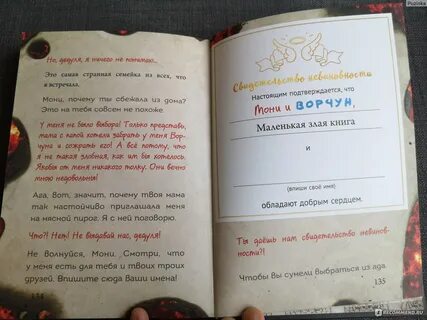 Но, дедуля, я ничего не понимаю...
Это самая странная семейка из всех, что
я встречала.
Мони, почему ты сбежала из дома?
Это на тебя совсем не похоже.
У меня не было выбора! Только представь,
мама с папой хотели забрать у меня Вор-
чуна и сожрать его! А всё потому, что
я не такая злобная, как им бы хотелось.
Якобы от меня никакого толку. Они вечно
мною недовольны!
Ага, вот, значит, почему твоя мама
так настойчиво приглашала меня
на мясной пирог. Я с ней поговорю.
Что?! Нет! Не выдавай нас, дедуля!
Не волнуйся, Мони. Смотри, что
у меня есть для тебя и твоих троих
друзей. Впишите сюда ваши имена!
134
Свидетельство невиновности
Настоящим подтверждается, что
Мони и ВОРЧУН,
Маленькая злая книга
и
(впиши своё имя)
обладают добрым сердцем.
Ты даёшь нам свидетельство невинов-
ности?!
Чтобы вы сумели выбраться из ада.
135
Puzinka
IRECOMMEND.RU